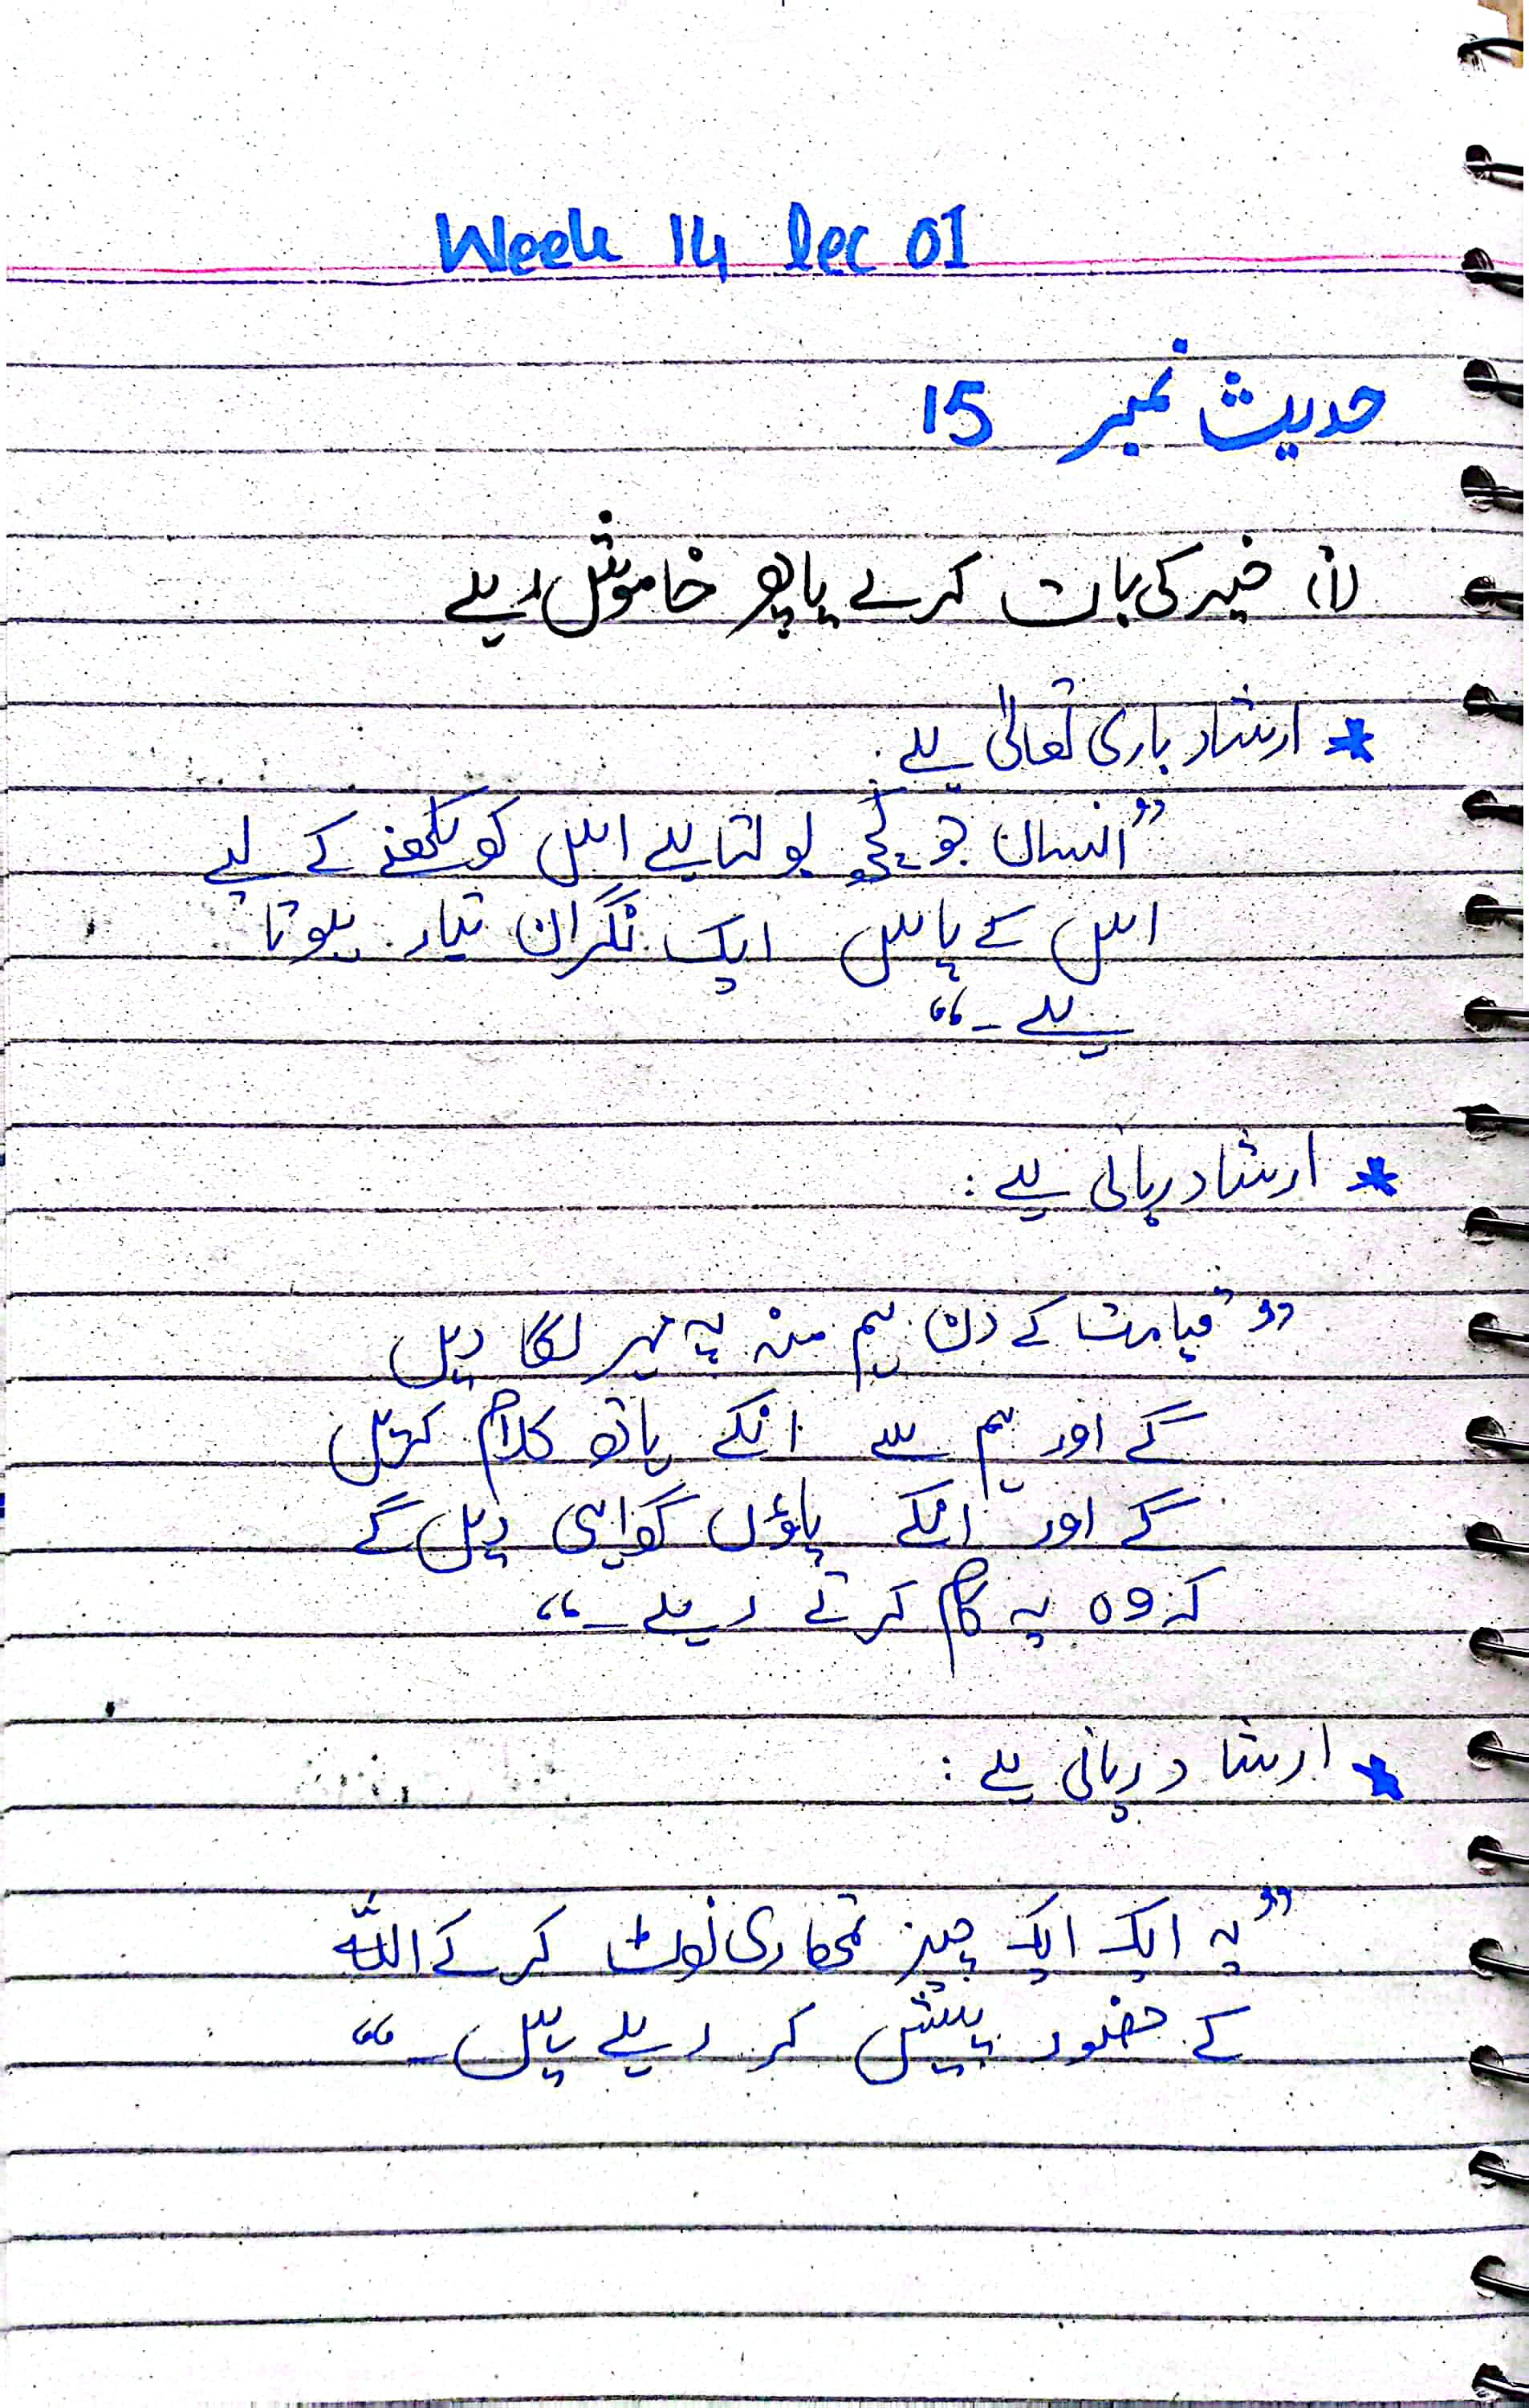 Week 14 Lec 01
حدیث نمبر 15
(i) خیر کی بات کرے یا پھر خاموش رہے
* ارشاد باری تعالیٰ ہے:
”انسان جو کچھ بولتا ہے اس کو لکھنے کے لیے
اس کے پاس ایک نگران تیار ہوتا
ہے۔“
* ارشاد ربانی ہے:
”قیامت کے دن ہم منہ پہ مہر لگا دیں
گے اور ہم سے انکے ہاتھ کلام کریں
گے اور انکے پاؤں گواہی دیں گے
کہ وہ یہ کام کرتے رہے۔“
* ارشاد ربانی ہے:
”یہ ایک ایک چیز تمھاری نوٹ کر کے اللّٰہ
کے حضور پیش کر رہے ہیں۔“